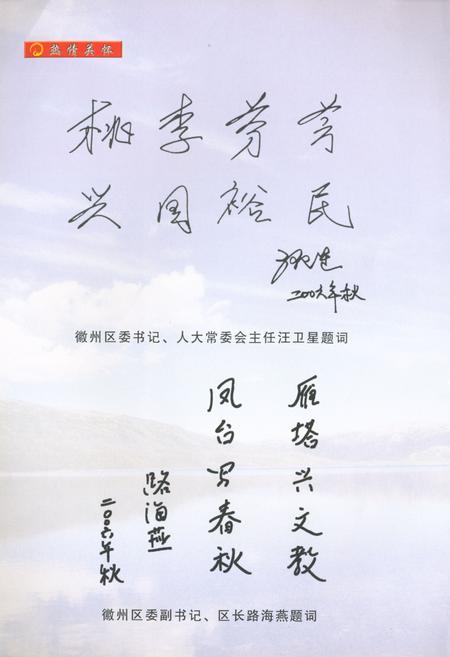 热情关怀
桃李芬芳
兴国裕民
二00六年秋
徽州区委书记、人大常委会主任汪卫星题词
雁塔兴文教
凤台写春秋
路海燕
二〇〇六年秋
徽州区委副书记、区长路海燕题词